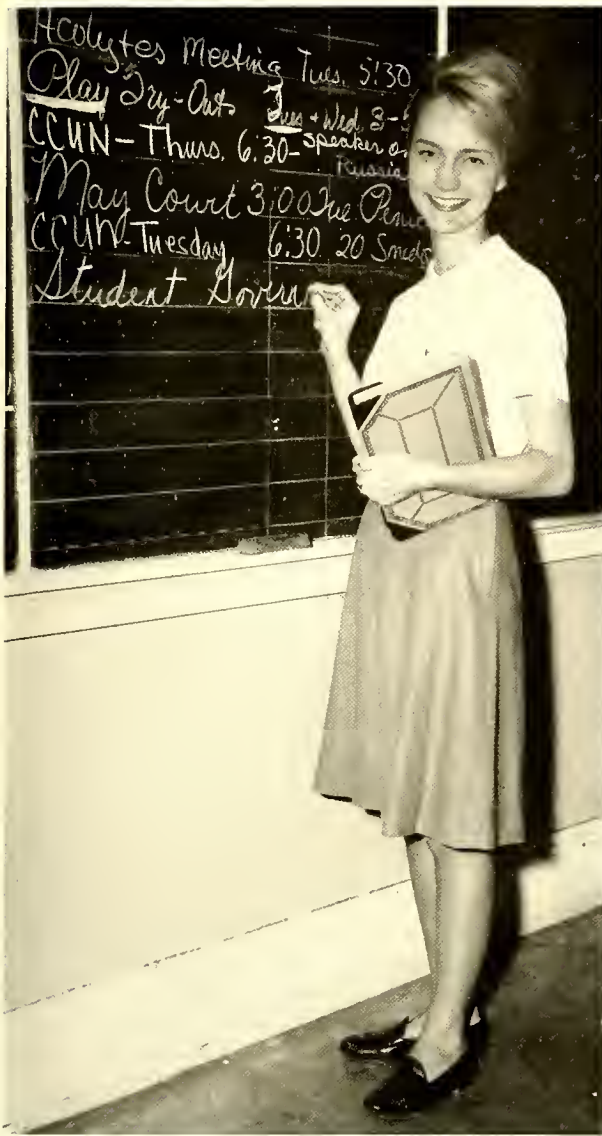 Acolytes Meeting Tues. 5:30
Play Try-Outs Tues + Wed. 3-5
CCUN - Thurs. 6:30 - speaker on
Russia
May Court 3:00 Tue.
CCUN - Tuesday 6:30 20
Student Govern